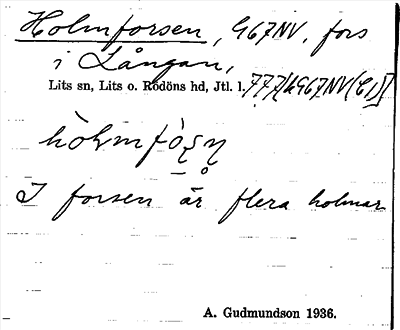 Holmforsen, G67NV, fors
i Långan,
Lits sn, Lits o. Rödöns hd, Jtl. l.
hòlmfò̠ʂn̥
I forsen är flera holmar
A. Gudmundson 1936.